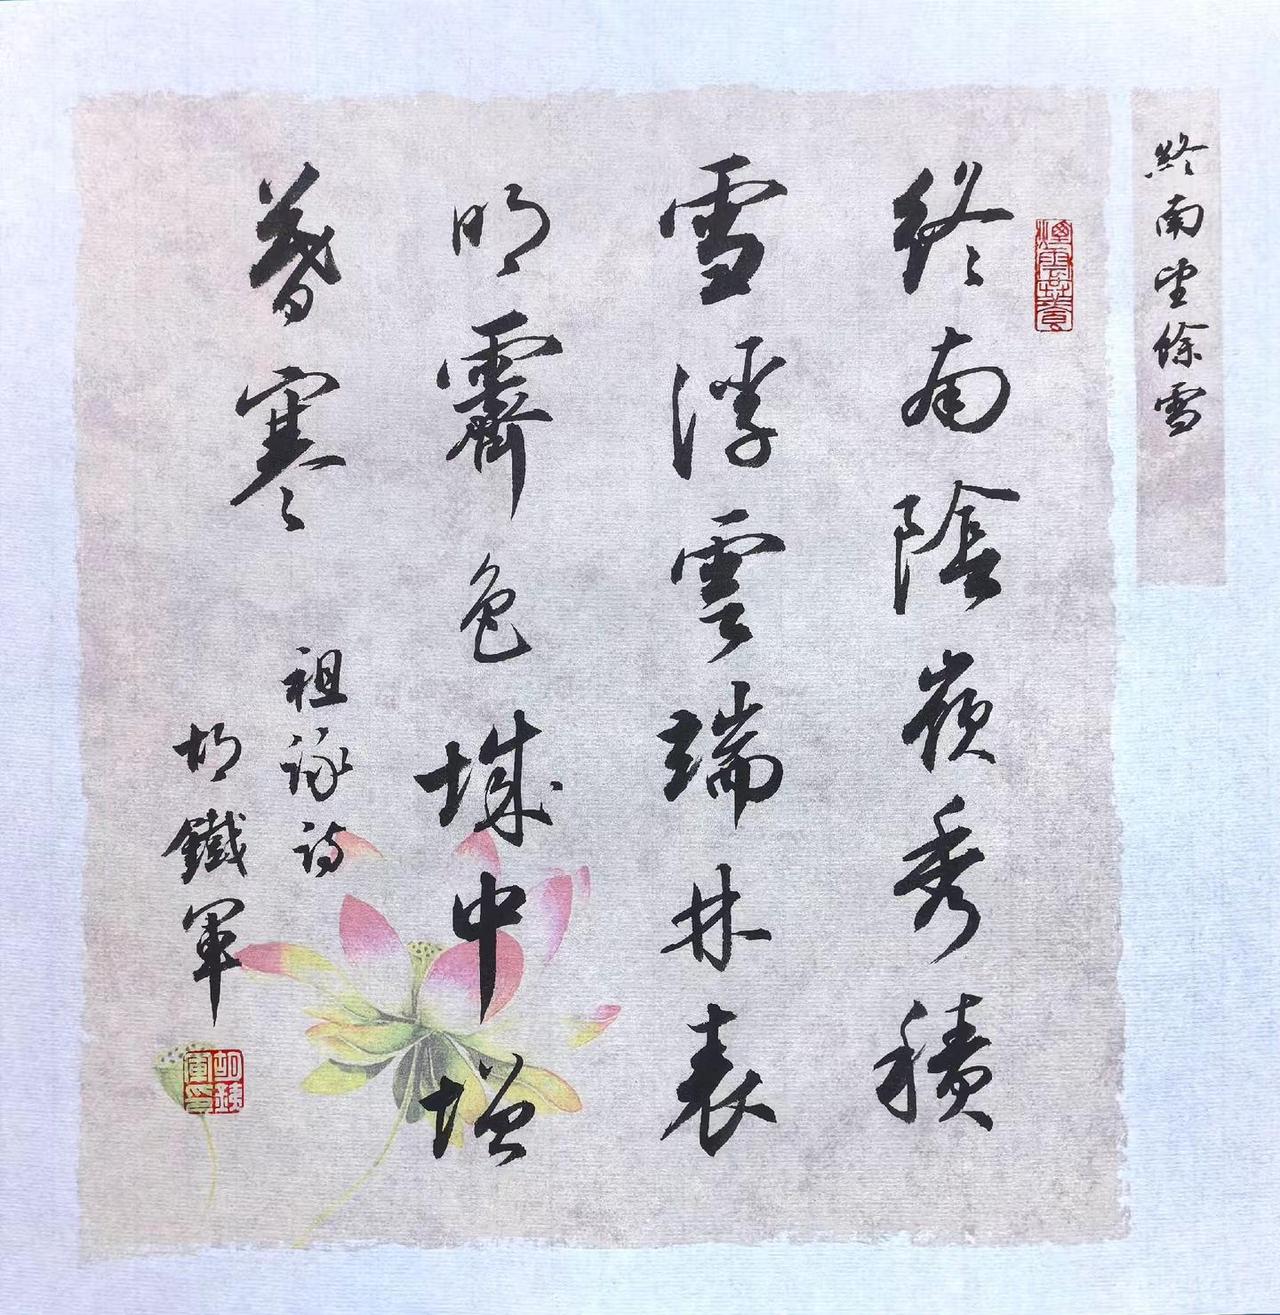 終南望餘雪
終南陰嶺秀積
雪浮雲端林表
明霽色城中增
暮寒
祖詠詩
胡鐵軍